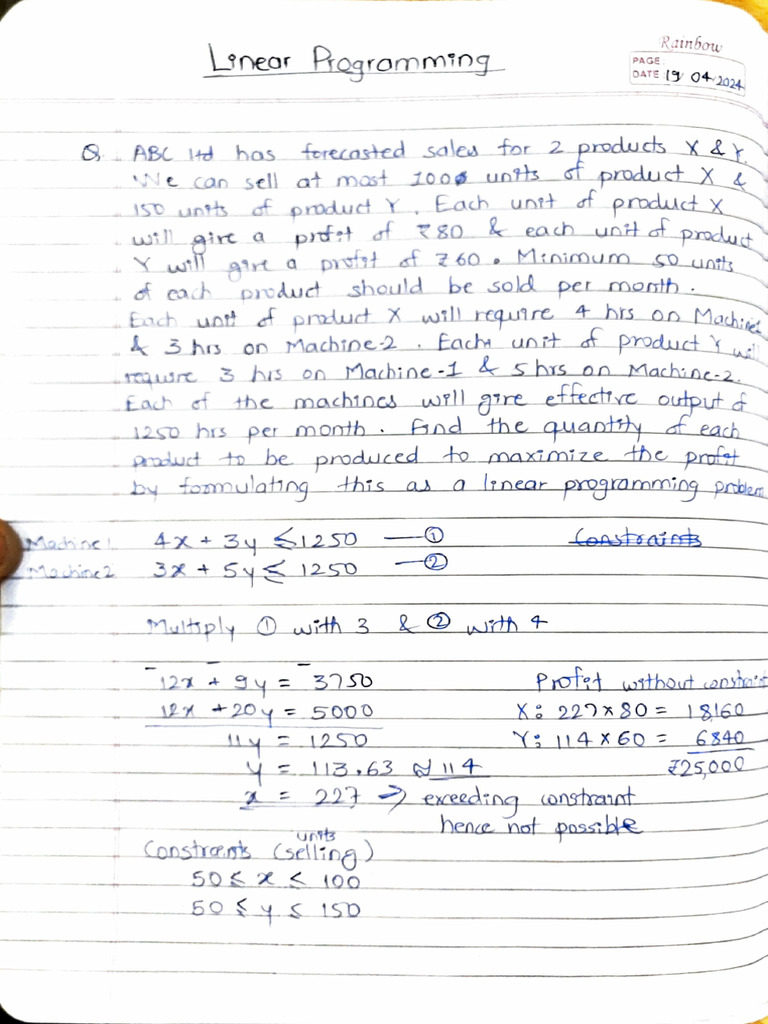 Linear Programming
Rainbow
PAGE:
DATE: 19 04 2024
Q. ABC ltd has forecasted sales for 2 products X & Y.
We can sell at most 100 units of product X &
150 units of product Y. Each unit of product X
will give a profit of ₹80 & each unit of product
Y will give a profit of ₹60. Minimum 50 units
of each product should be sold per month.
Each unit of product X will require 4 hrs on Machine1
& 3 hrs on Machine-2. Each unit of product Y will
require 3 hrs on Machine-1 & 5 hrs on Machine-2.
Each of the machines will give effective output of
1250 hrs per month. Find the quantity of each
product to be produced to maximize the profit
by formulating this as a linear programming problem
Machine1 4x + 3y ≤ 1250 — ① Constraints
Machine2 3x + 5y ≤ 1250 — ②
Multiply ① with 3 & ② with 4
12x + 9y = 3750 Profit without constraint
12x + 20y = 5000 X: 227 x 80 = 18,160
11y = 1250 Y: 114 x 60 = 6840
y = 113.63 ≈ 114 ₹25,000
x = 227 → exceeding constraint
hence not possible
units
Constraints (selling)
50 ≤ x ≤ 100
50 ≤ y ≤ 150